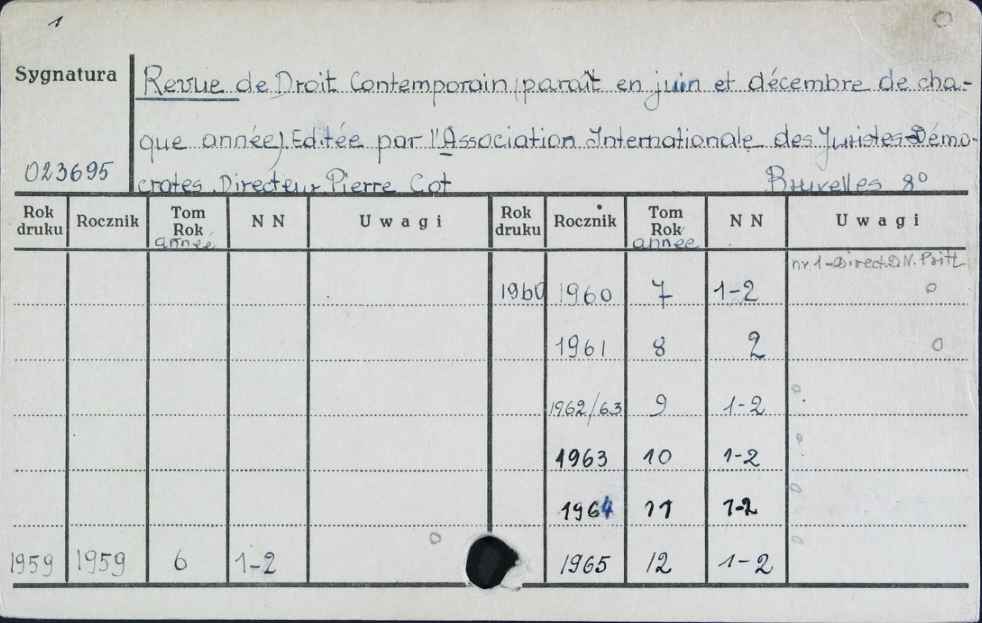 1
Sygnatura
023695
Revue de Droit Contemporain (paraît en juin et décembre de cha-
que année). Editée par l'Association Internationale des Juristes Démo-
crates. Directeur Pierre Cot Bruxelles 8°
Rok druku Rocznik Tom Rok année NN Uwagi Rok druku Rocznik Tom Rok année NN Uwagi
nr. 1-Direct. D.N. Pritt
1960 1960 7 1-2 0
1961 8 2 0
1962/63 9 1-2 0
1963 10 1-2 0
1964 11 1-2 0
1959 1959 6 1-2 0 1965 12 1-2 0